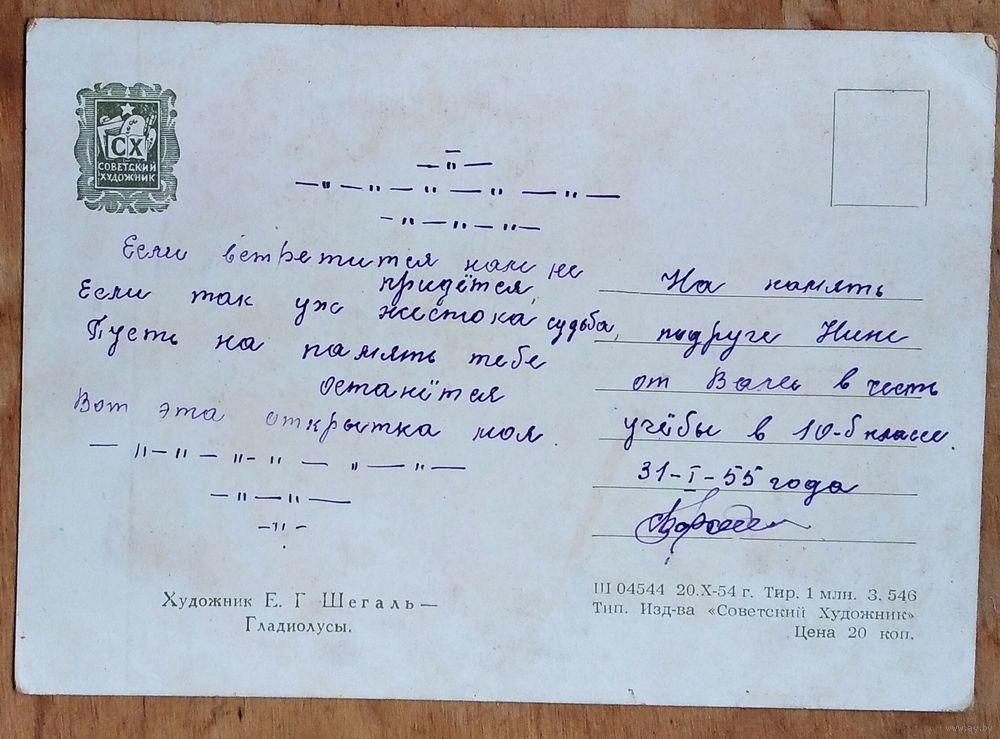 СХ
СОВЕТСКИЙ
ХУДОЖНИК
— " —
— " — " — " — " — " —
— " — " — " —
Если встретится нам не
придётся,
Если так уж жестока судьба,
Пусть на память тебе
останется
Вот эта открытка моя.
— " — " — " — " — " — " —
— " — " —
— " —
На память
подруге Нине
от Вали в честь
учёбы в 10-б классе.
31-I-55 года
Художник Е. Г Шегаль—
Гладиолусы.
Ш 04544 20.X-54 г. Тир. 1 млн. З. 546
Тип. Изд-ва «Советский Художник»
Цена 20 коп.
www.ay.by